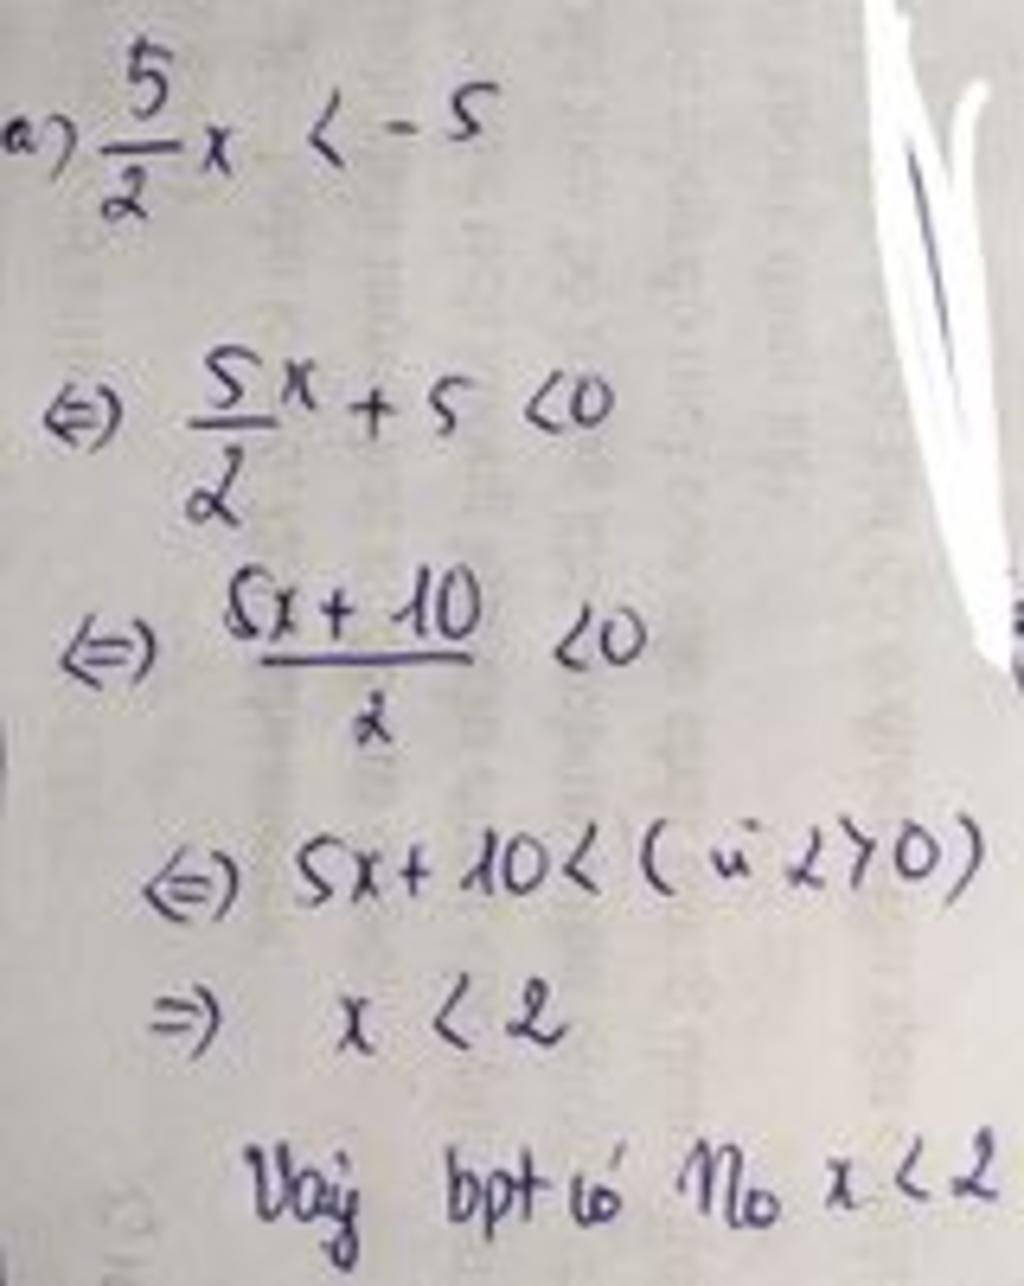 a) 5/2 x < - 5
⇔ 5x/2 + 5 < 0
⇔ (5x + 10)/2 < 0
⇔ 5x + 10 < ( vì 2 > 0 )
⇒ x < 2
Vậy bpt có n₀ x < 2